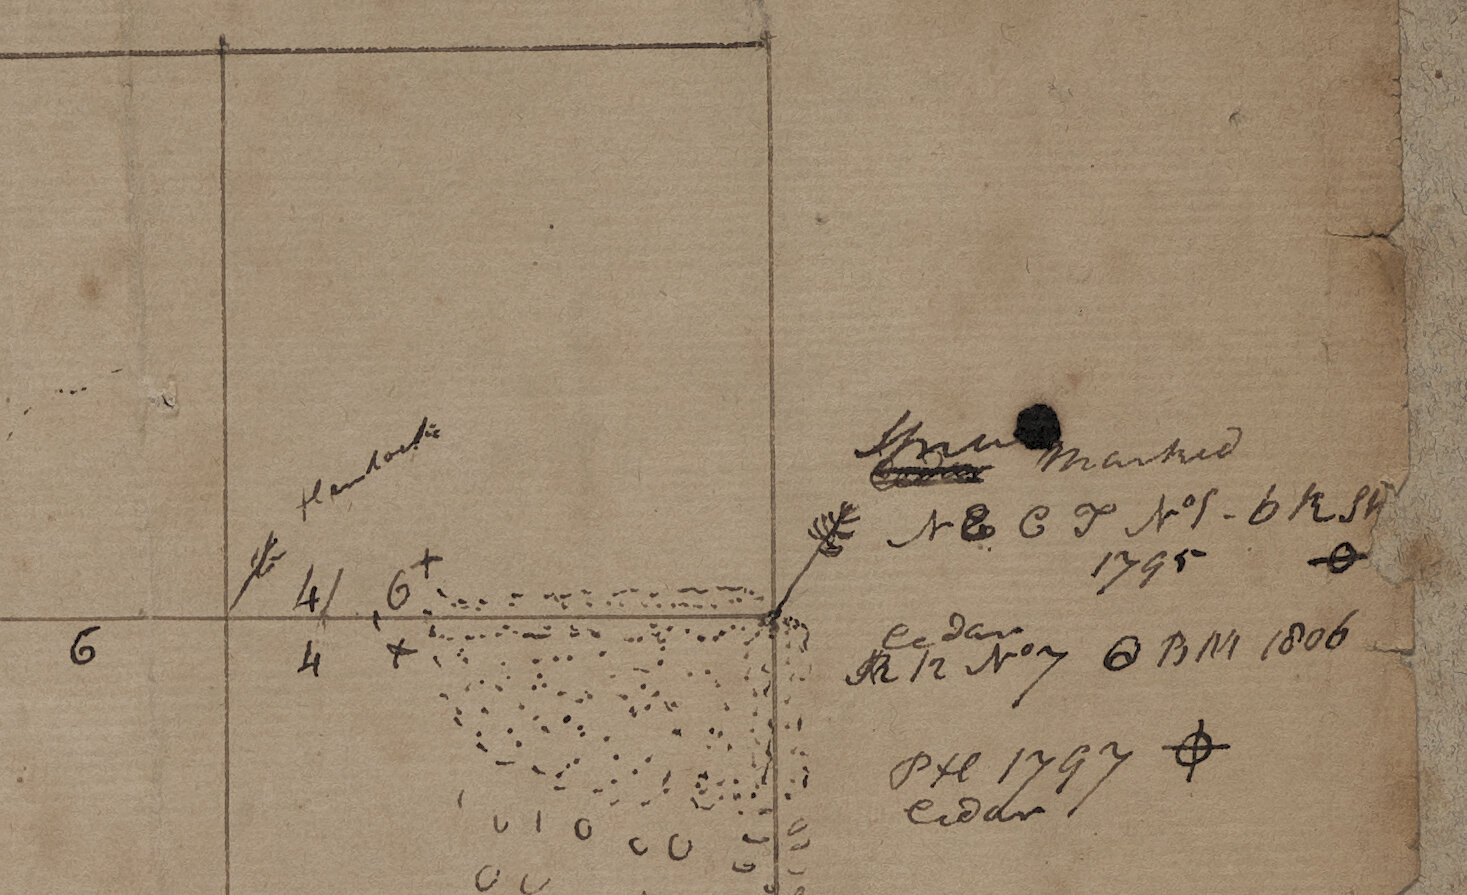 Hemlock
4/ 6 +
6 4 +
Cedar Marked
N E C T No 1 - 6 R
1795
Cedar
No 7 B M 1806
P H 1797
Cedar